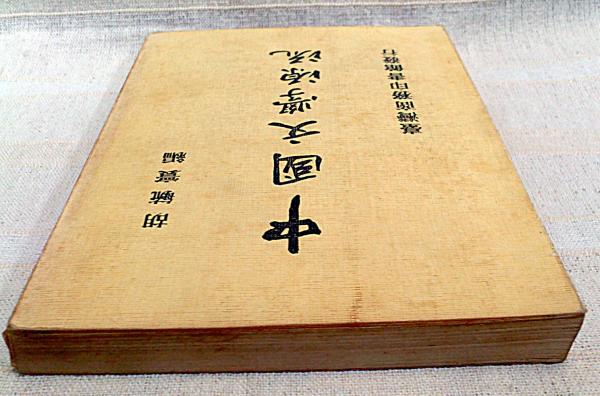 臺灣商務印書館發行
中國文學源流
胡毓寰編